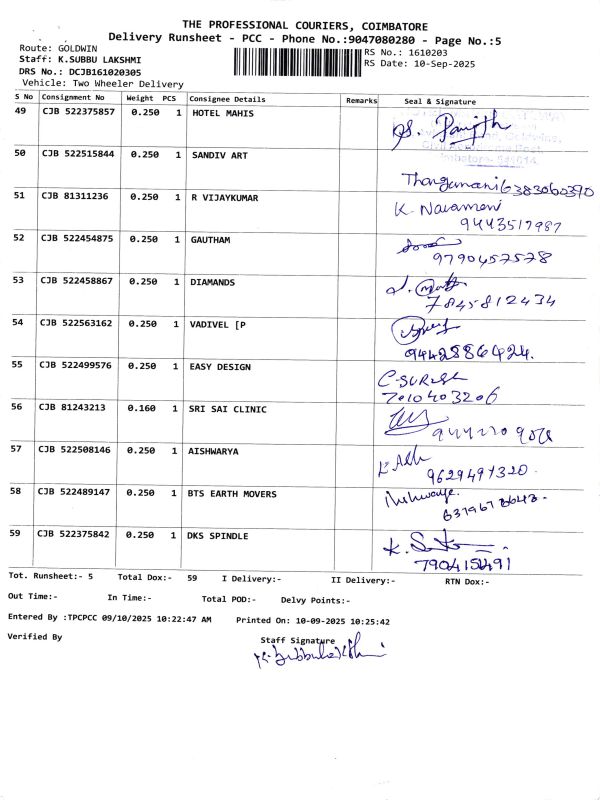 THE PROFESSIONAL COURIERS, COIMBATORE
Delivery Runsheet - PCC - Phone No.:9047080280 - Page No.:5
Route: GOLDWIN
RS No.: 1610203
Staff: K.SUBBU LAKSHMI
RS Date: 10-Sep-2025
DRS No.: DCJB161020305
Vehicle: Two Wheeler Delivery
S No Consignment No Weight PCS Consignee Details Remarks Seal & Signature
49 CJB 522375857 0.250 1 HOTEL MAHIS
50 CJB 522515844 0.250 1 SANDIV ART
Thangamani 6383060390
51 CJB 81311236 0.250 1 R VIJAYKUMAR K. Navamani
9443517987
52 CJB 522454875 0.250 1 GAUTHAM
9790457578
53 CJB 522458867 0.250 1 DIAMANDS
7845812434
54 CJB 522563162 0.250 1 VADIVEL [P
9442886424.
55 CJB 522499576 0.250 1 EASY DESIGN C-SURESH
7010403206
56 CJB 81243213 0.160 1 SRI SAI CLINIC
57 CJB 522508146 0.250 1 AISHWARYA
9629497320.
58 CJB 522489147 0.250 1 BTS EARTH MOVERS
59 CJB 522375842 0.250 1 DKS SPINDLE
Tot. Runsheet:- 5 Total Dox:- 59 I Delivery:- II Delivery:- RTN Dox:-
Out Time:- In Time:- Total POD:- Delvy Points:-
Entered By :TPCPCC 09/10/2025 10:22:47 AM Printed On: 10-09-2025 10:25:42
Verified By Staff Signature